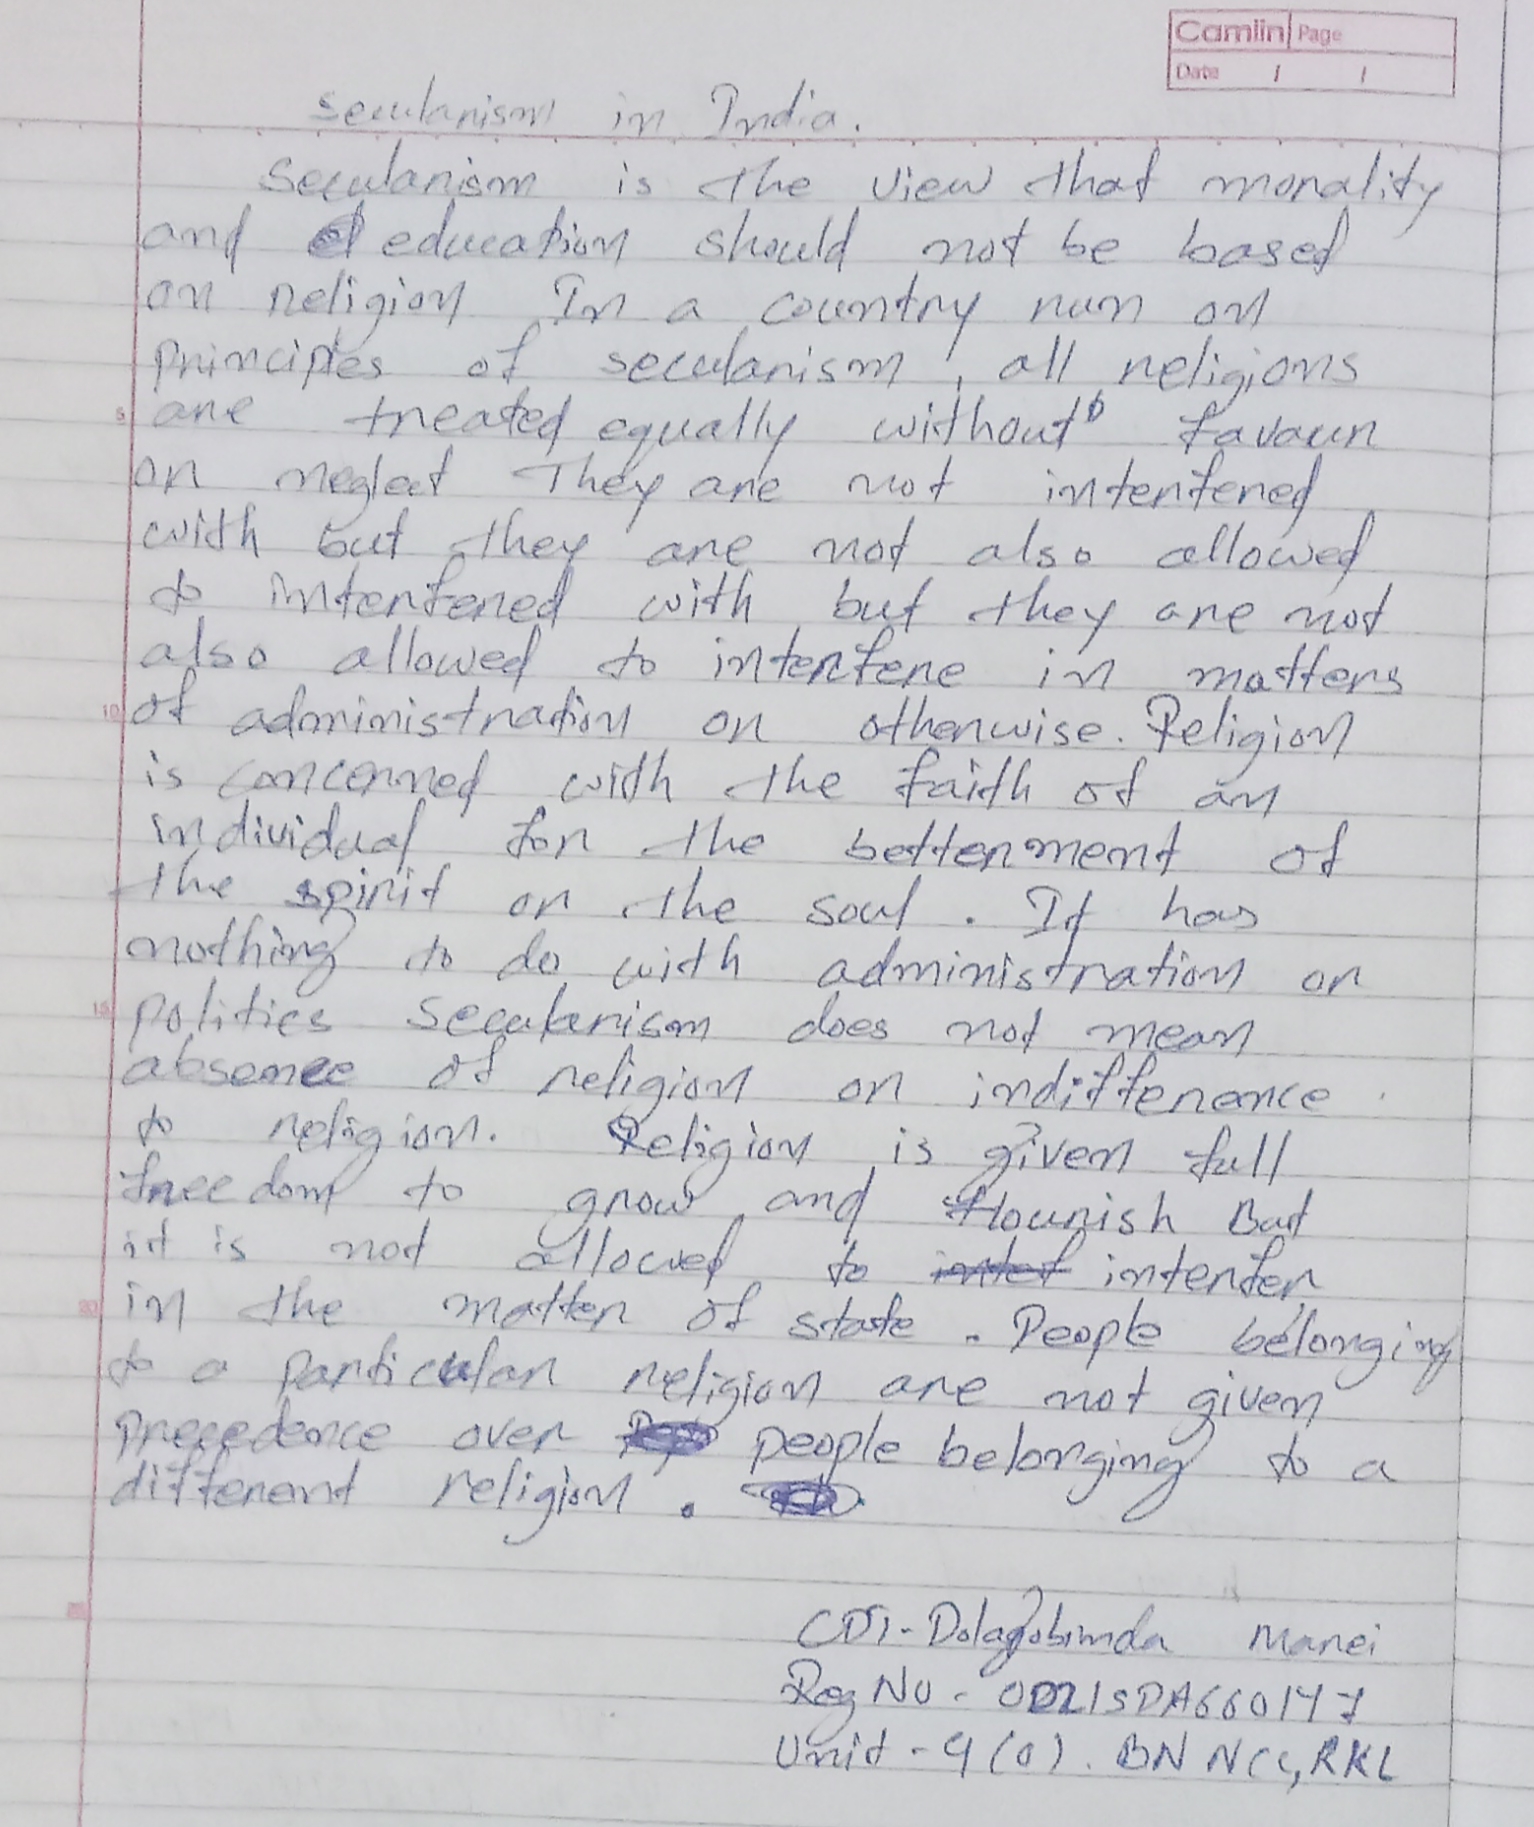 Camlin Page
Date / /
secularism in India.
Secularism is the view that morality
and education should not be based
on religion In a country run on
principles of secularism, all religions
5 are treated equally without favour
or neglect They are not interfered
with but they are not also allowed
to interfered with but they are not
also allowed to interfere in matters
10 of administration or otherwise. Religion
is concerned with the faith of an
individual for the betterment of
the spirit or the soul. It has
nothing to do with administration or
15 politics Secularism does not mean
absence of religion or indifference
to religion. Religion is given full
freedom to grow and flourish But
it is not allowed to interfer
20 in the matter of state. People belonging
to a particular religion are not given
precedence over people belonging to a
different religion.
25
CDT-Dolagobinda Manei
Reg No - OD21SDA660147
Unit - 9(O). BN NCC, RKL